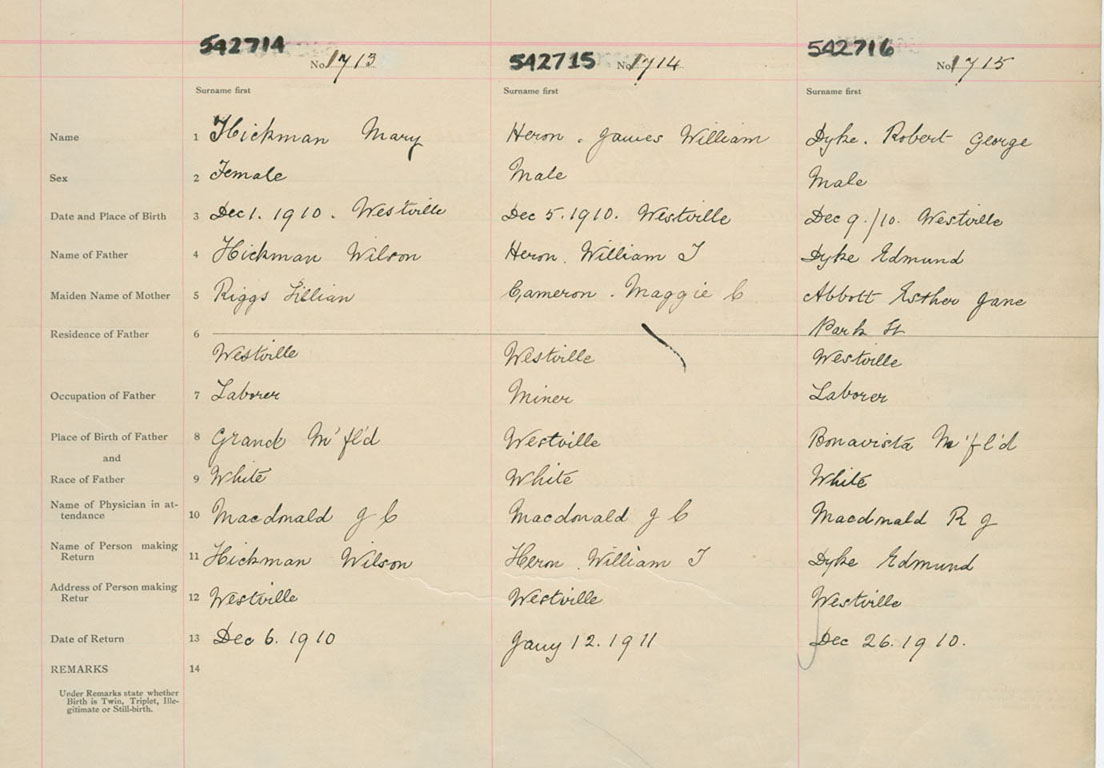 542714 542715 542716
No. 1713 No. 1714 No. 1715
Surname first Surname first Surname first
Name 1 Hickman Mary Heron. James William Dyke. Robert George
Sex 2 Female Male Male
Date and Place of Birth 3 Dec 1. 1910. Westville Dec 5. 1910. Westville Dec 9./10. Westville
Name of Father 4 Hickman Wilson Heron. William T Dyke Edmund
Maiden Name of Mother 5 Riggs Lillian Cameron. Maggie C Abbott Esther Jane
Residence of Father 6 Park St
Westville Westville Westville
Occupation of Father 7 Laborer Miner Laborer
Place of Birth of Father 8 Grand N'fl'd Westville Bonavista N'f'l'd
and
Race of Father 9 White White White
Name of Physician in at-
tendance 10 Macdonald J C Macdonald J C Macdonald R J
Name of Person making
Return 11 Hickman Wilson Heron. William T Dyke Edmund
Address of Person making
Retur 12 Westville Westville Westville
Date of Return 13 Dec 6. 1910 Jany 12. 1911 Dec 26. 1910.
REMARKS 14
Under Remarks state whether
Birth is Twin, Triplet, Ille-
gitimate or Still-birth.